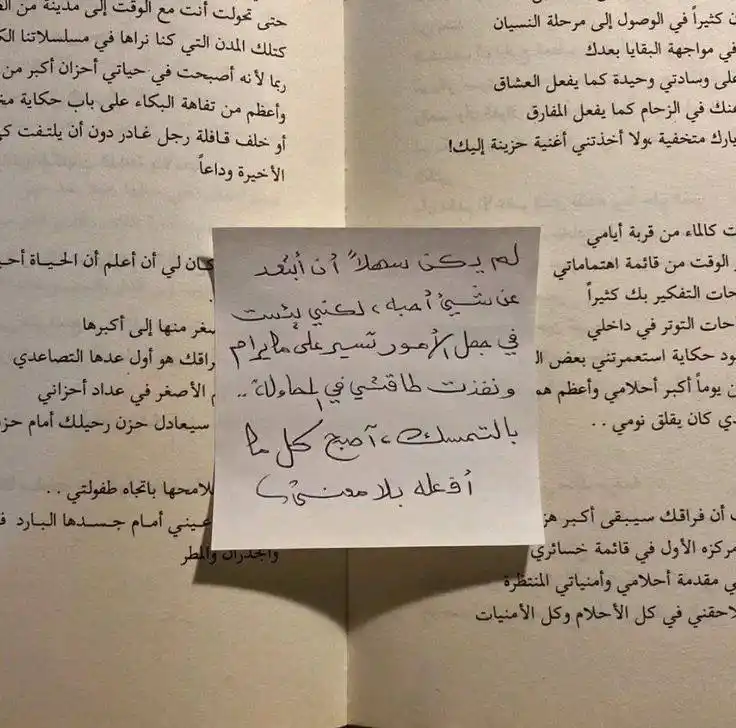 ن كثيراً في الوصول إلى مرحلة النسيان
في مواجهة البقايا بعدك
على وسادتي وحيدة كما يفعل العشاق
عنك في الزحام كما يفعل المفارق
يارك متخفية ،ولا أخذتني أغنية حزينة إليك!
ت كالماء من قربة أيامي
الوقت من قائمة اهتماماتي
حات التفكير بك كثيراً
احات التوتر في داخلي
ود حكاية استعمرتني بعض ال
ن يوماً أكبر أحلامي وأعظم هم
دي كان يقلق نومي . .
ب أن فراقك سيبقى أكبر هز
مركزه الأول في قائمة خسائري
ي مقدمة أحلامي وأمنياتي المنتظرة
لاحقني في كل الأحلام وكل الأمنيات
حتى تحولت أنت مع الوقت إلى مدينة من
كتلك المدن التي كنا نراها في مسلسلاتنا الك
ربما لأنه أصبحت في حياتي أحزان أكبر من
وأعظم من تفاهة البكاء على باب حكاية
أو خلف قافلة رجل غادر دون أن يلتفت
الأخيرة وداعاً
كان لي أن أعلم أن الحياة أحي
صغر منها إلى أكبرها
راقك هو أول عدها التصاعدي
م الأصغر في عداد أحزاني
سيعادل حزن رحيلك أمام حزن
لامحها باتجاه طفولتي . .
عيني أمام جسدها البارد
والجدران والمطر
لم يكن سهلاً أن أبتعد
عن شيئ أحبه ، لكني يئست
في جعل الأمور تسير على مايرام
ونفذت طاقتي في المحاولة ..
بالتمسك ، أصبح كل ما
أفعله بلا معنى